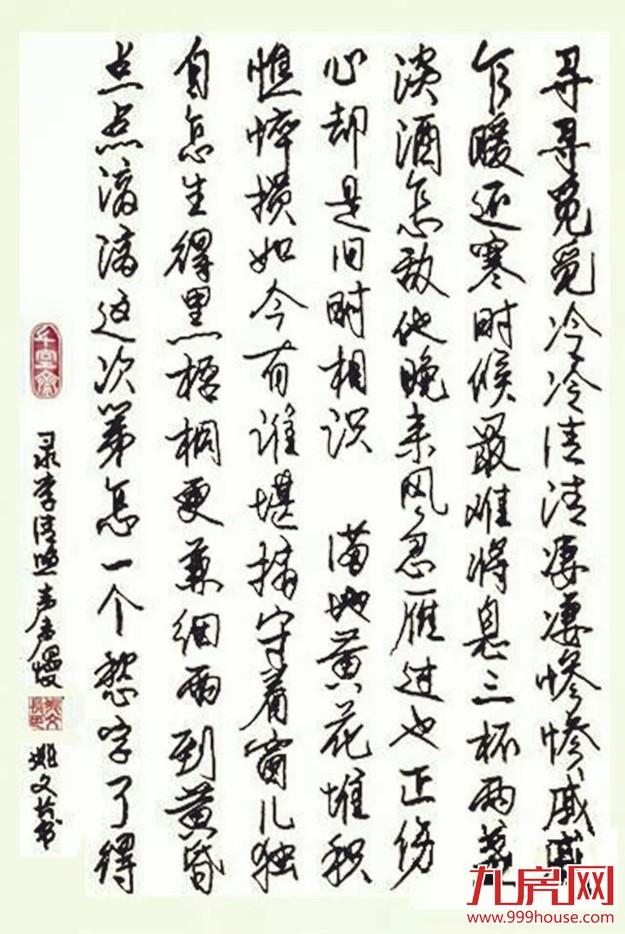 寻寻觅觅冷冷清清凄凄惨惨戚戚
乍暖还寒时候最难将息三杯两盏
淡酒怎敌他晚来风急雁过也正伤
心却是旧时相识 满地黄花堆积
憔悴损如今有谁堪摘守着窗儿独
自怎生得黑梧桐更兼细雨到黄昏
点点滴滴这次第怎一个愁字了得
录李清照声声慢
姚文长书
九房网
www.999house.com